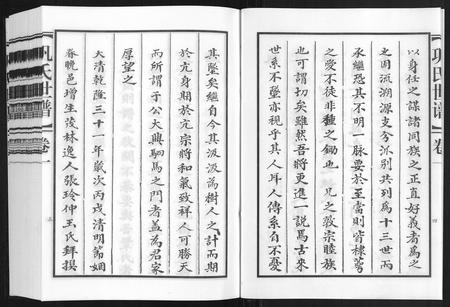 巩氏世谱
卷
以身任之谋諸同族之正直好義者為之
之周流溯源支分派别共列為十三世而
承繼恐其不明一脉要於至當則皆棣萼
之爱不徒非種之鋤也 兄之敦宗睦族
也可謂切矣雖然吾將更進一説焉古來
世系不墜亦視乎其人耳人傳系自不憂
四
其墜矣繼自今其汲汲為樹人之計而期
於亢身期於亢宗將和氣致祥人可勝天
而所謂于公大興駟馬之門者盖為君家
厚望之
大清乾隆三十一年歲次丙戌清明節姻
眷晚邑增生淩林逸人張玲仲玉氏拜撰
五
巩氏世谱
卷一